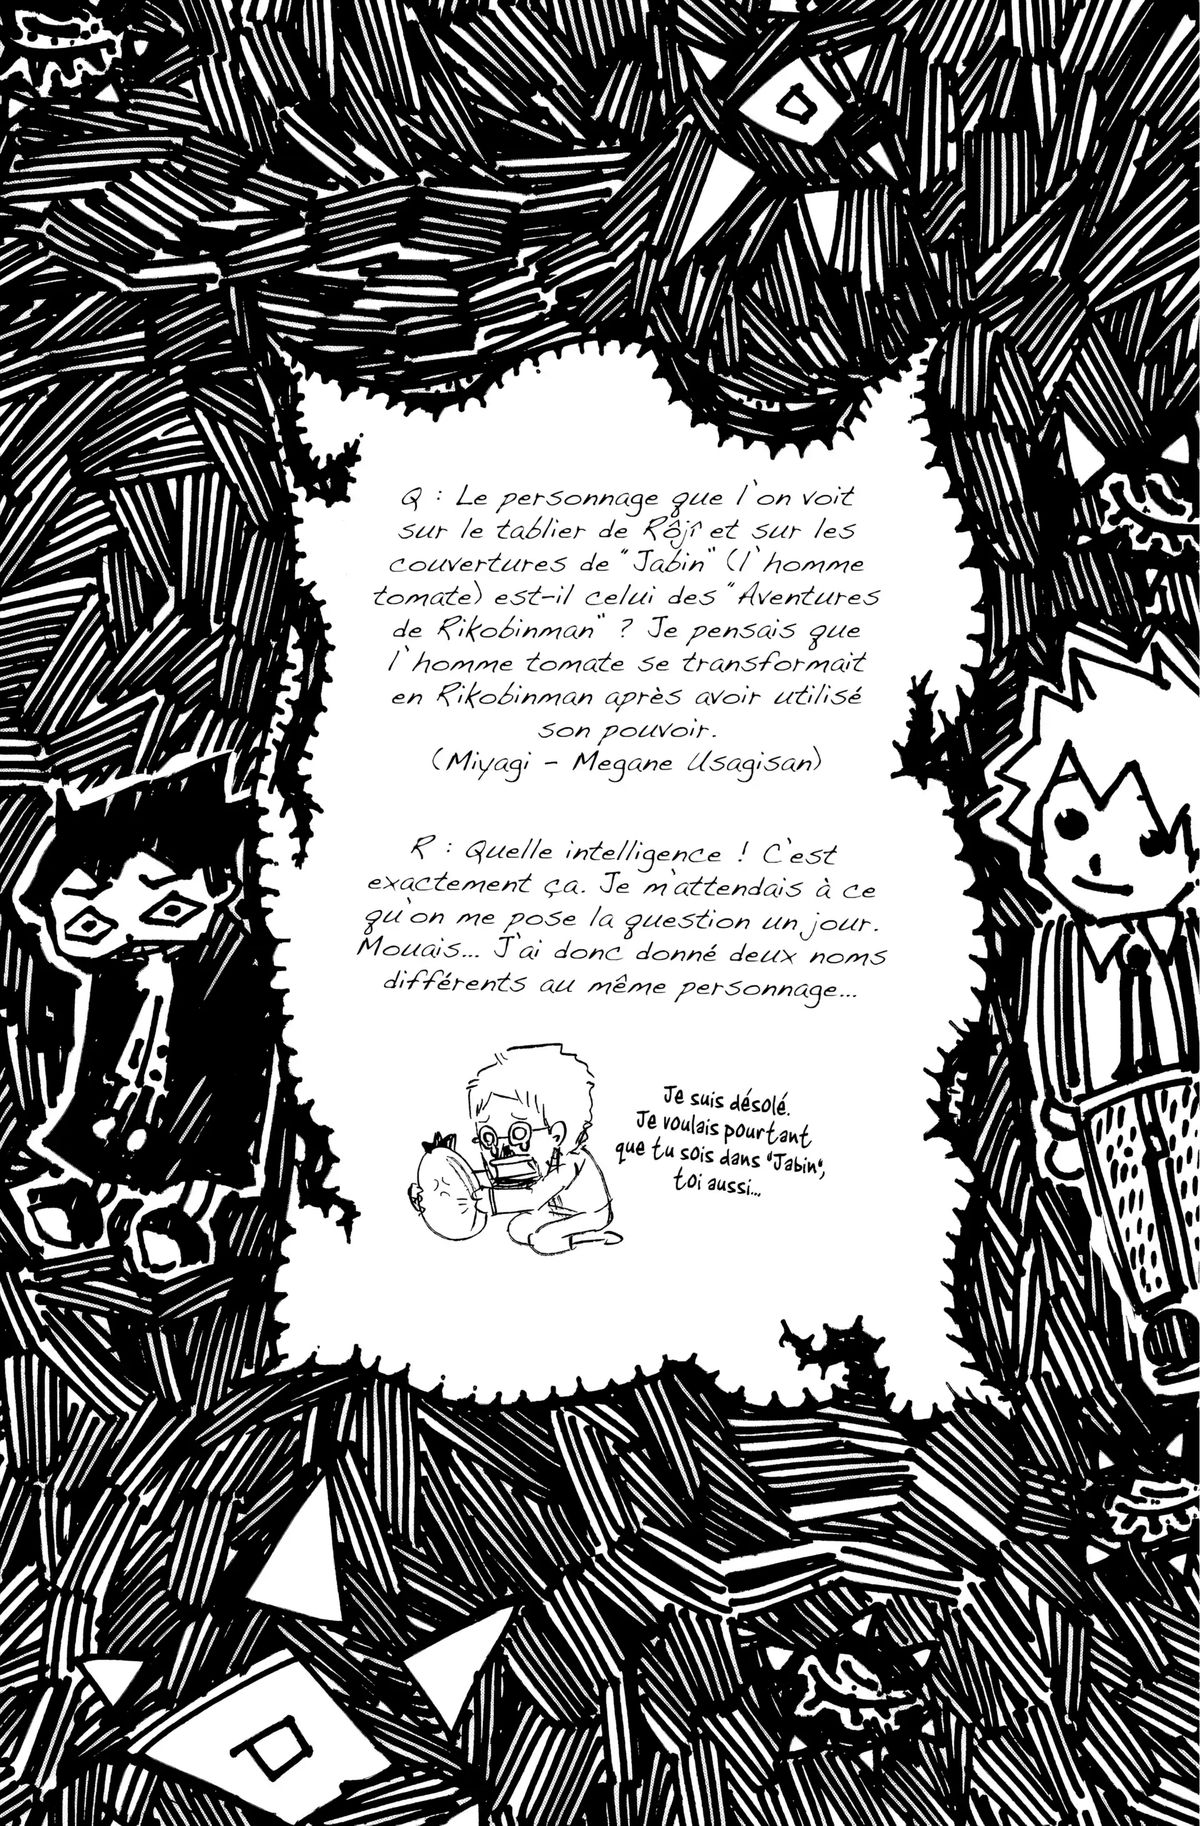 Q : Le personnage que l'on voit
sur le tablier de Rôjî et sur les
couvertures de "Jabin" (l'homme
tomate) est-il celui des "Aventures
de Rikobinman" ? Je pensais que
l'homme tomate se transformait
en Rikobinman après avoir utilisé
son pouvoir.
(Miyagi - Megane Usagisan)
R : Quelle intelligence ! C'est
exactement ça. Je m'attendais à ce
qu'on me pose la question un jour.
Mouais... J'ai donc donné deux noms
différents au même personnage...
Je suis désolé.
Je voulais pourtant
que tu sois dans "Jabin",
toi aussi...